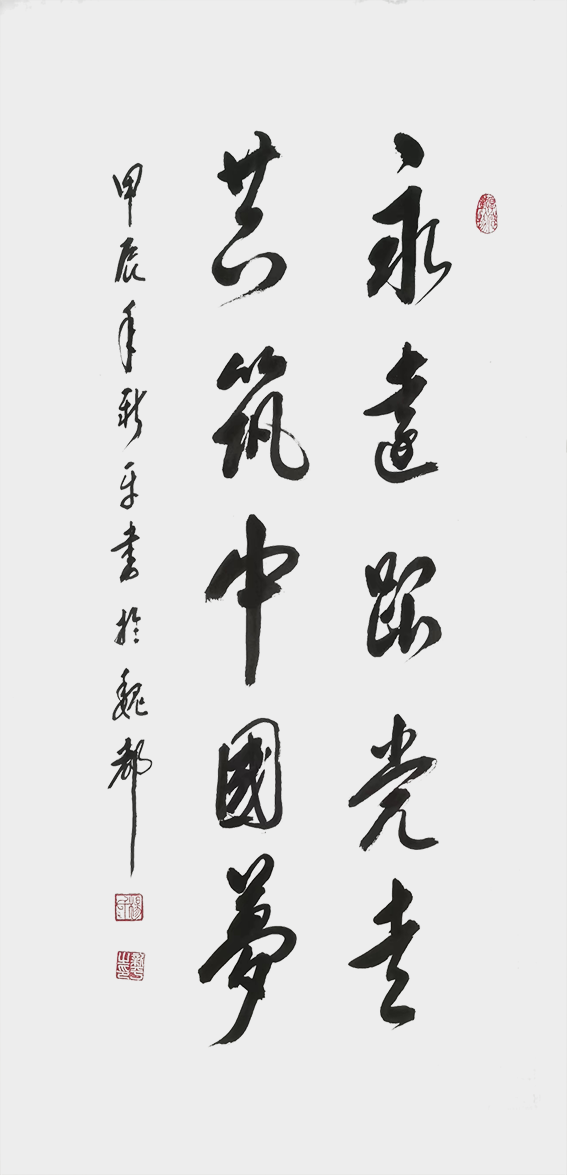 永遠跟党走
共筑中國夢
甲辰年新平書於魏都